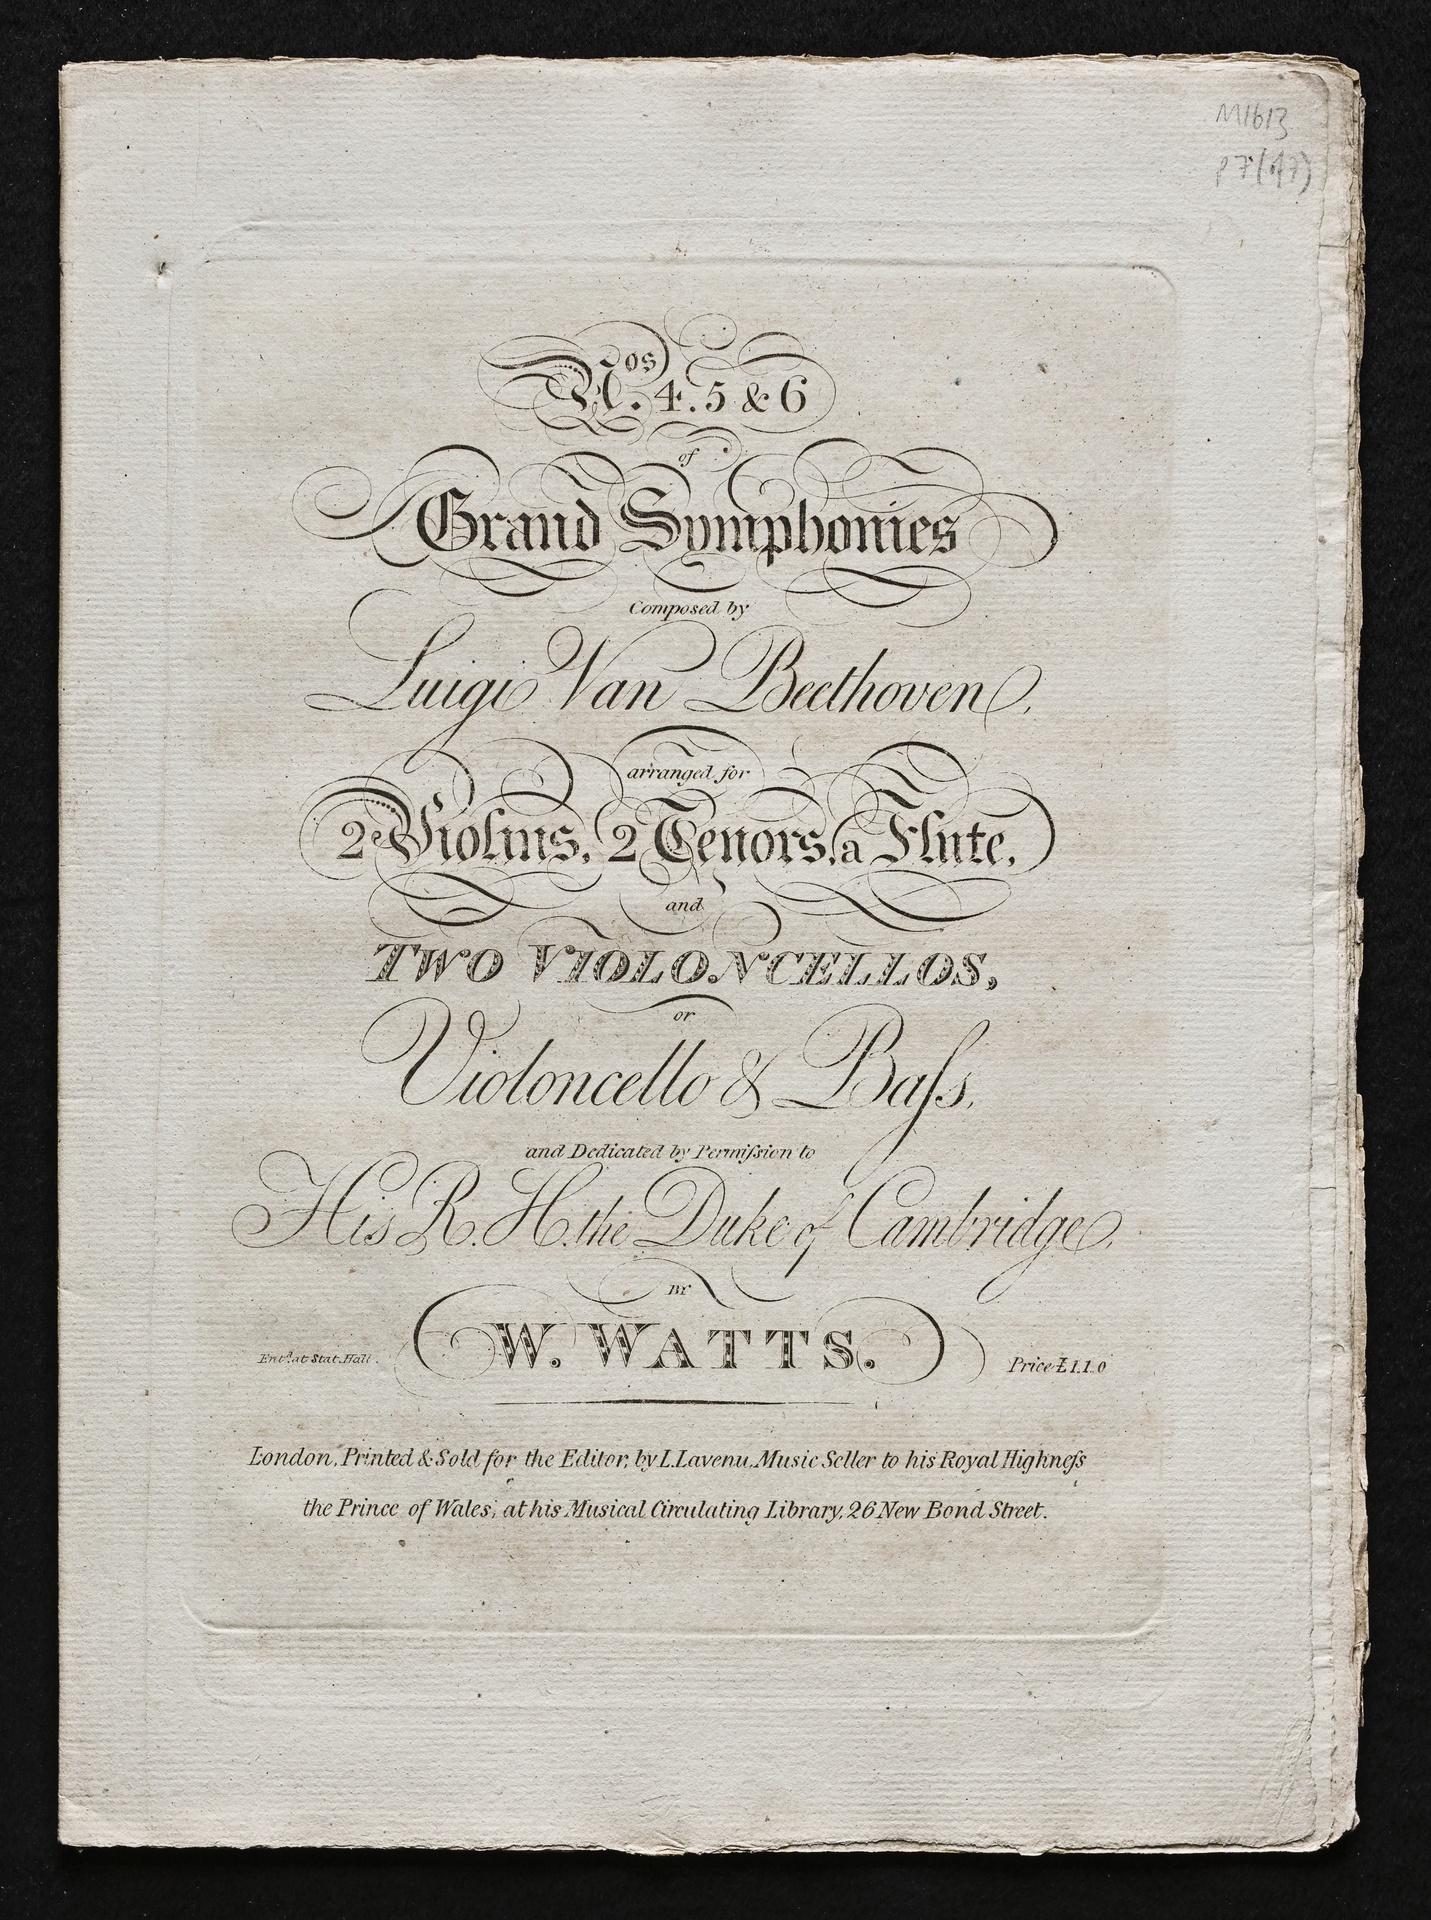 M1613
p 7 (of 7)
Nos. 4. 5 & 6
of
Grand Symphonies
Composed by
Luigi Van Beethoven,
arranged for
2 Violins, 2 Tenors, a Flute,
and
TWO VIOLONCELLOS,
or
Violoncello & Baſs,
and Dedicated by Permiſsion to
His R. H. the Duke of Cambridge,
BY
W. WATTS.
Entd. at Stat. Hall.
Price £1.1.0
London, Printed & Sold for the Editor, by L. Lavenu, Music Seller to his Royal Highneſs
the Prince of Wales, at his Musical Circulating Library, 26 New Bond Street.